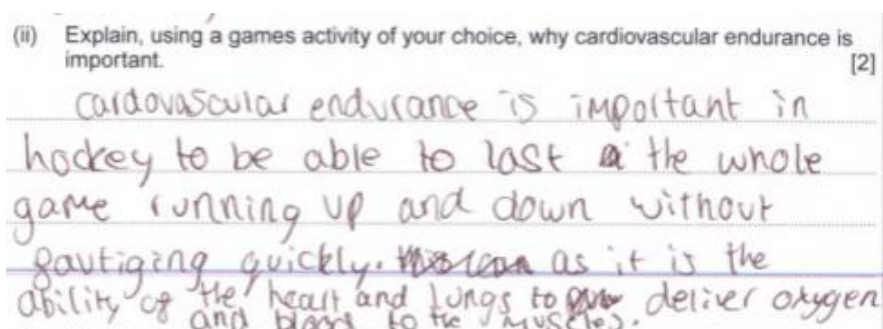 (ii) Explain, using a games activity of your choice, why cardiovascular endurance is
important. [2]
cardovascular endurance is important in
hockey to be able to last the whole
game running up and down without
fautiging quickly. as it is the
ability of the heart and lungs to deliver oxygen
and blood to the muscles.